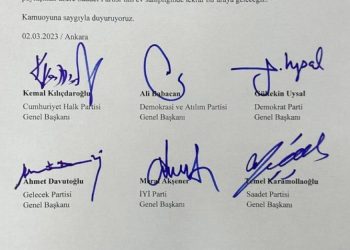 Kamuoyuna saygıyla duyuruyoruz.
02.03.2023 / Ankara
Kemal Kılıçdaroğlu
Cumhuriyet Halk Partisi
Genel Başkanı
Ali Babacan
Demokrasi ve Atılım Partisi
Genel Başkanı
Gültekin Uysal
Demokrat Parti
Genel Başkanı
Ahmet Davutoğlu
Gelecek Partisi
Genel Başkanı
Meral Akşener
İYİ Parti
Genel Başkanı
Temel Karamollaoğlu
Saadet Partisi
Genel Başkanı